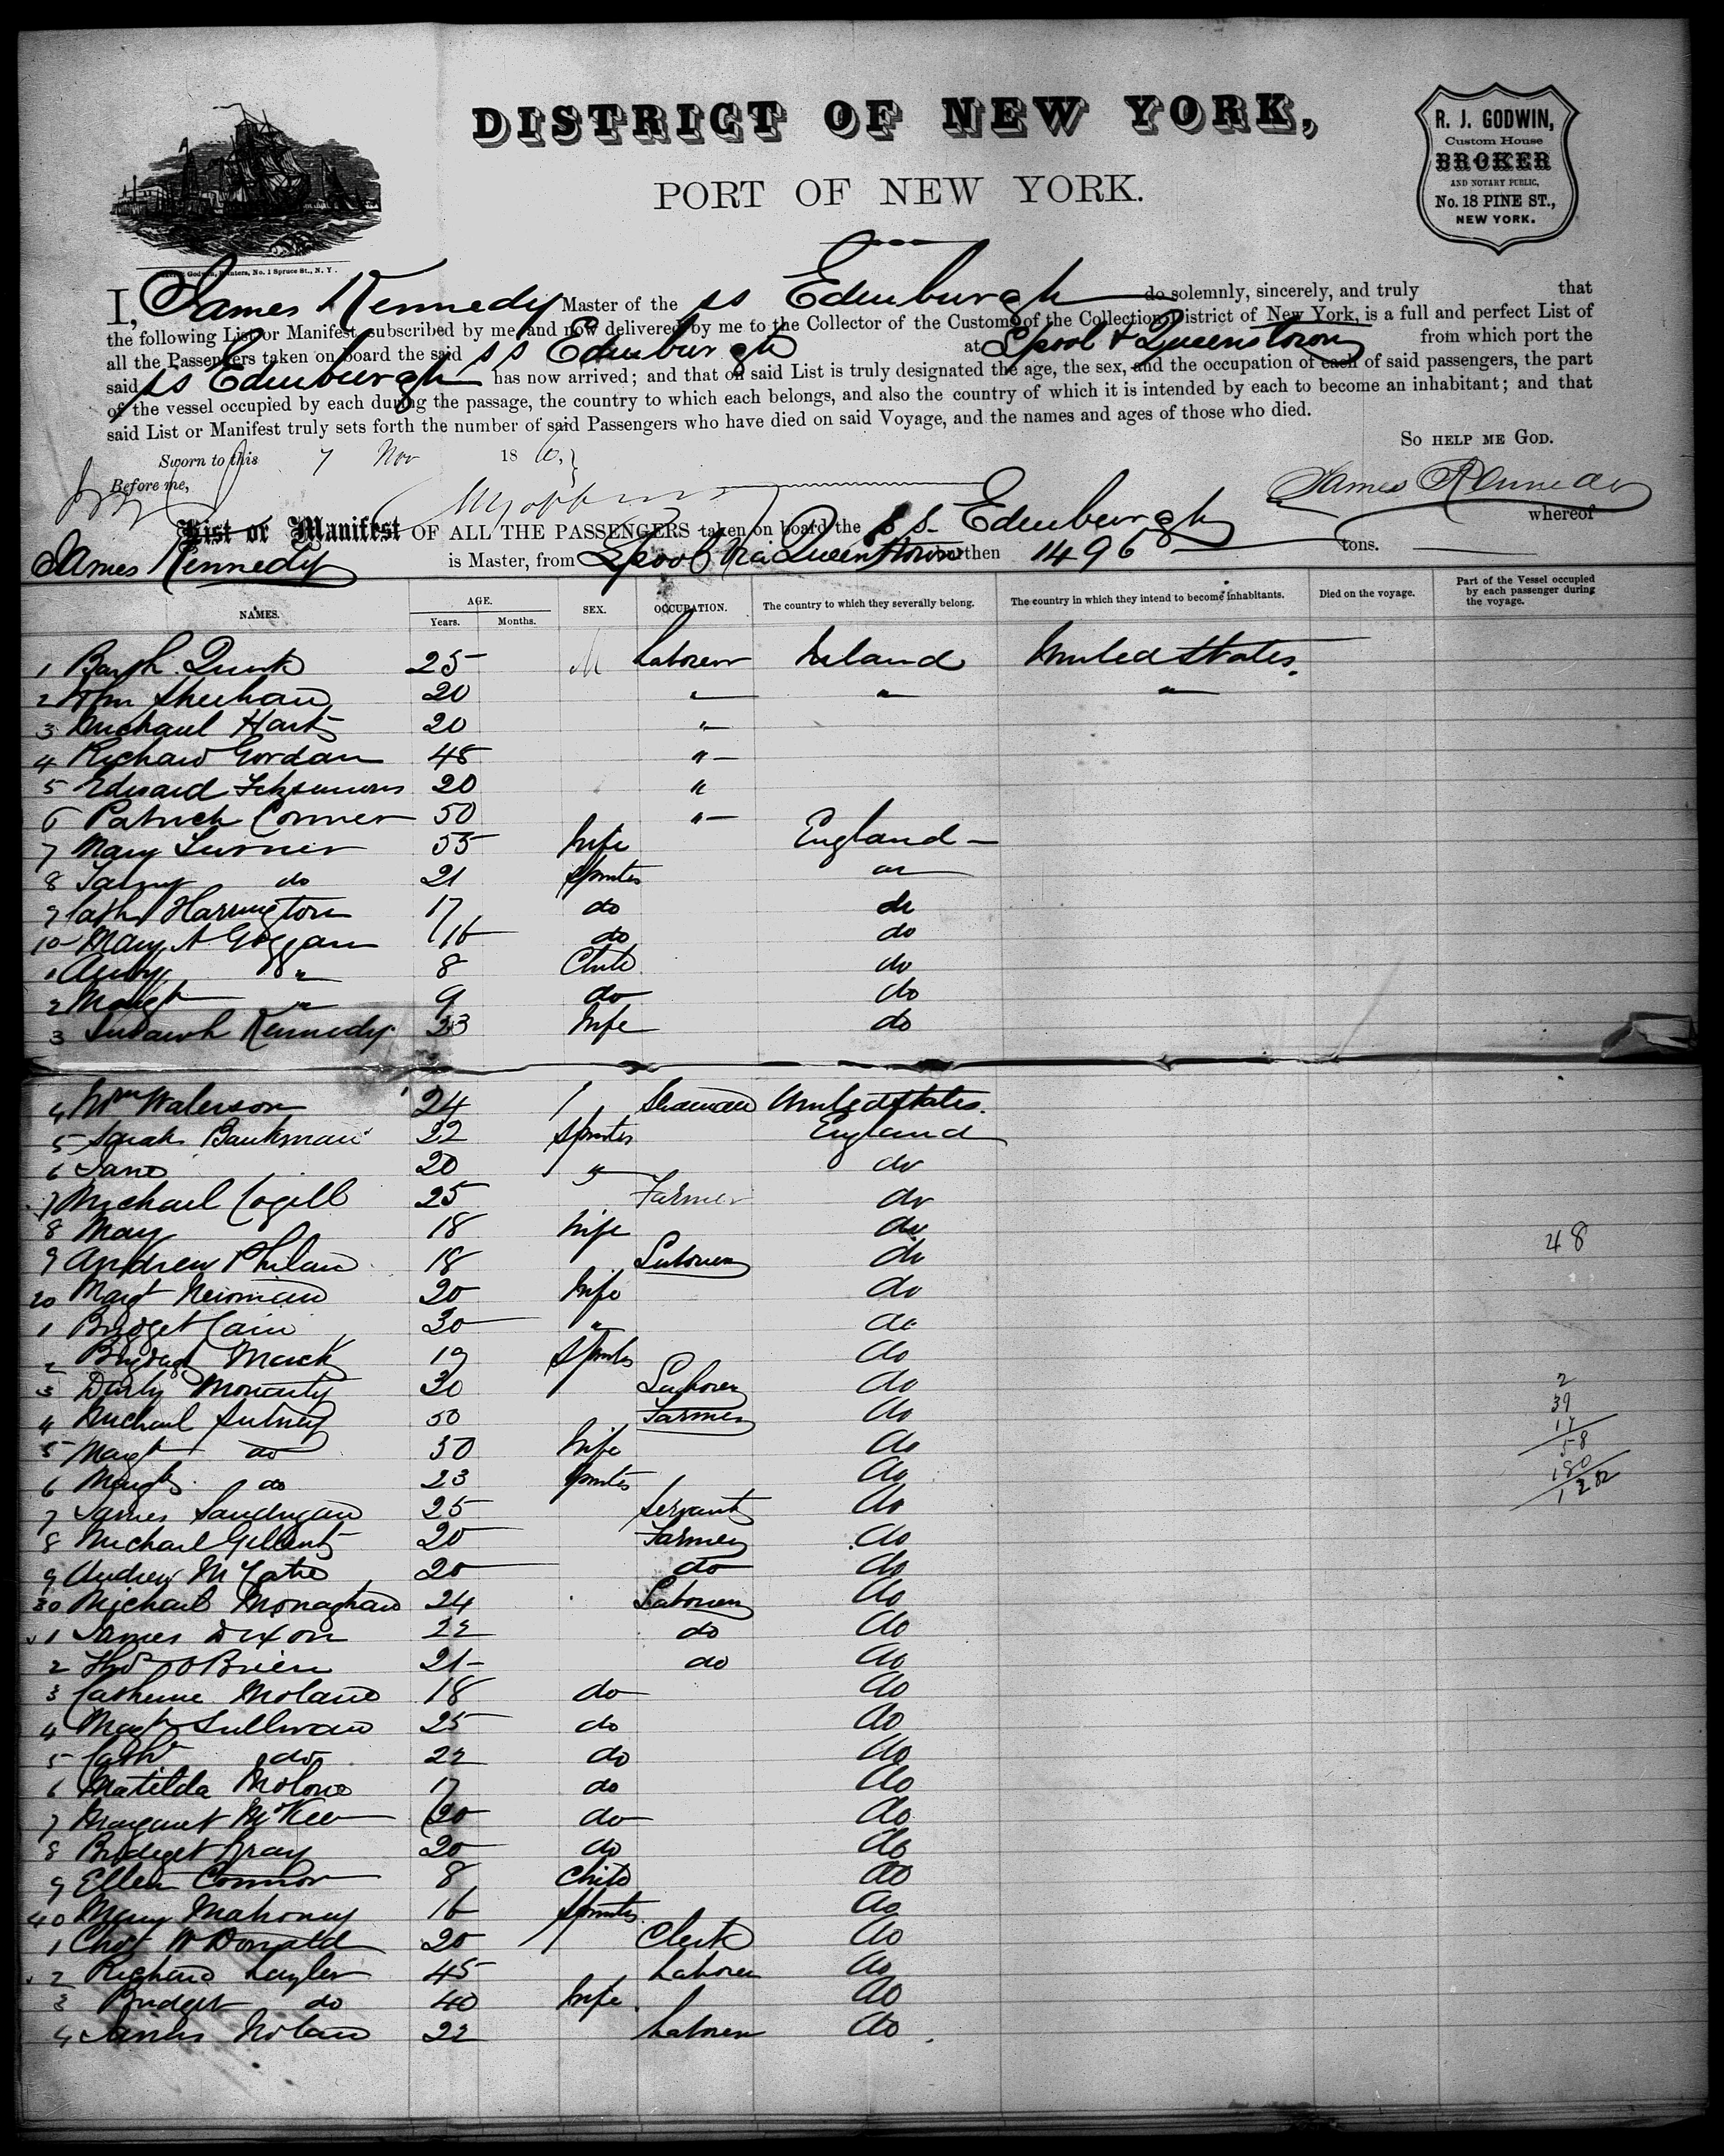 DISTRICT OF NEW YORK,
PORT OF NEW YORK.
R. J. GODWIN,
Custom House
BROKER
AND NOTARY PUBLIC,
No. 18 PINE ST.,
NEW YORK.
Godwin, Printers, No. 1 Spruce St., N. Y.
I, James Kennedy Master of the ss Edinburgh do solemnly, sincerely, and truly that
the following List or Manifest, subscribed by me, and now delivered by me to the Collector of the Customs of the Collection District of New York, is a full and perfect List of
all the Passengers taken on board the said ss Edinburgh at Lpool & Queenstown from which port the
said ss Edinburgh has now arrived; and that on said List is truly designated the age, the sex, and the occupation of each of said passengers, the part
of the vessel occupied by each during the passage, the country to which each belongs, and also the country of which it is intended by each to become an inhabitant; and that
said List or Manifest truly sets forth the number of said Passengers who have died on said Voyage, and the names and ages of those who died.
SO HELP ME GOD.
Sworn to this 7 Nov 18
Before me,
James Kennedy
List or Manifest OF ALL THE PASSENGERS taken on board the SS Edinburgh whereof
James Kennedy is Master, from Lpool via Queenstown burthen 1496 tons.
NAMES. AGE. Years. Months. SEX. OCCUPATION. The country to which they severally belong. The country in which they intend to become inhabitants. Died on the voyage. Part of the Vessel occupied by each passenger during the voyage.
1 Quirk 25 M Laborer Ireland United States.
2 Jhn Sheehan 20 " " "
3 Michael Hart 20 "
4 Richard Gordan 48 "
5 Edward 20 "
6 Patrick Conner 50 "
7 Mary Turner 55 Wife England
8 do 21 Spinster
9 Cath Harrington 17 do do
10 Mary A Goggan 16 do do
8 Child do
2 Margt " 9 do do
3 Kennedy 23 Wife do
4 Wm Waterson 24 Seaman United States.
5 Sarah Bankman 22 Spinster England
6 Jane 20 " do
7 Michael Cogill 25 Farmer do
8 Mary 18 Wife do
48
9 Andrew Philan 18 Laborer do
20 Margt Newman 20 Wife do
1 Bridget Cain 30 " do
2 Bridget Mack 19 Spinster do
3 Darby Moriarty 30 Laborer do
2
4 Michael 50 Farmer do
39
17
5 Margt do 50 Wife do
58
6 Margt do 23 Spinster do
180
7 James 25 Servant do
8 Michael 20 Farmer do
9 Andrew 20 do do
30 Michael Monaghan 24 Laborer do
1 James Dixon 22 do do
2 Thos O Brien 21 do do
3 Catherine 18 do do
4 Margt Sullivan 25 do do
5 Cath do 22 do do
6 Matilda 17 do do
7 Margaret McKee 20 do do
8 Bridget Gray 20 do do
9 Ellen Connor 8 Child do
40 Mary Mahoney 16 Spinster do
1 Chas McDonald 20 Clerk do
2 Richard 45 Laborer do
3 Bridget do 40 Wife do
4 James Nolan 22 Laborer do